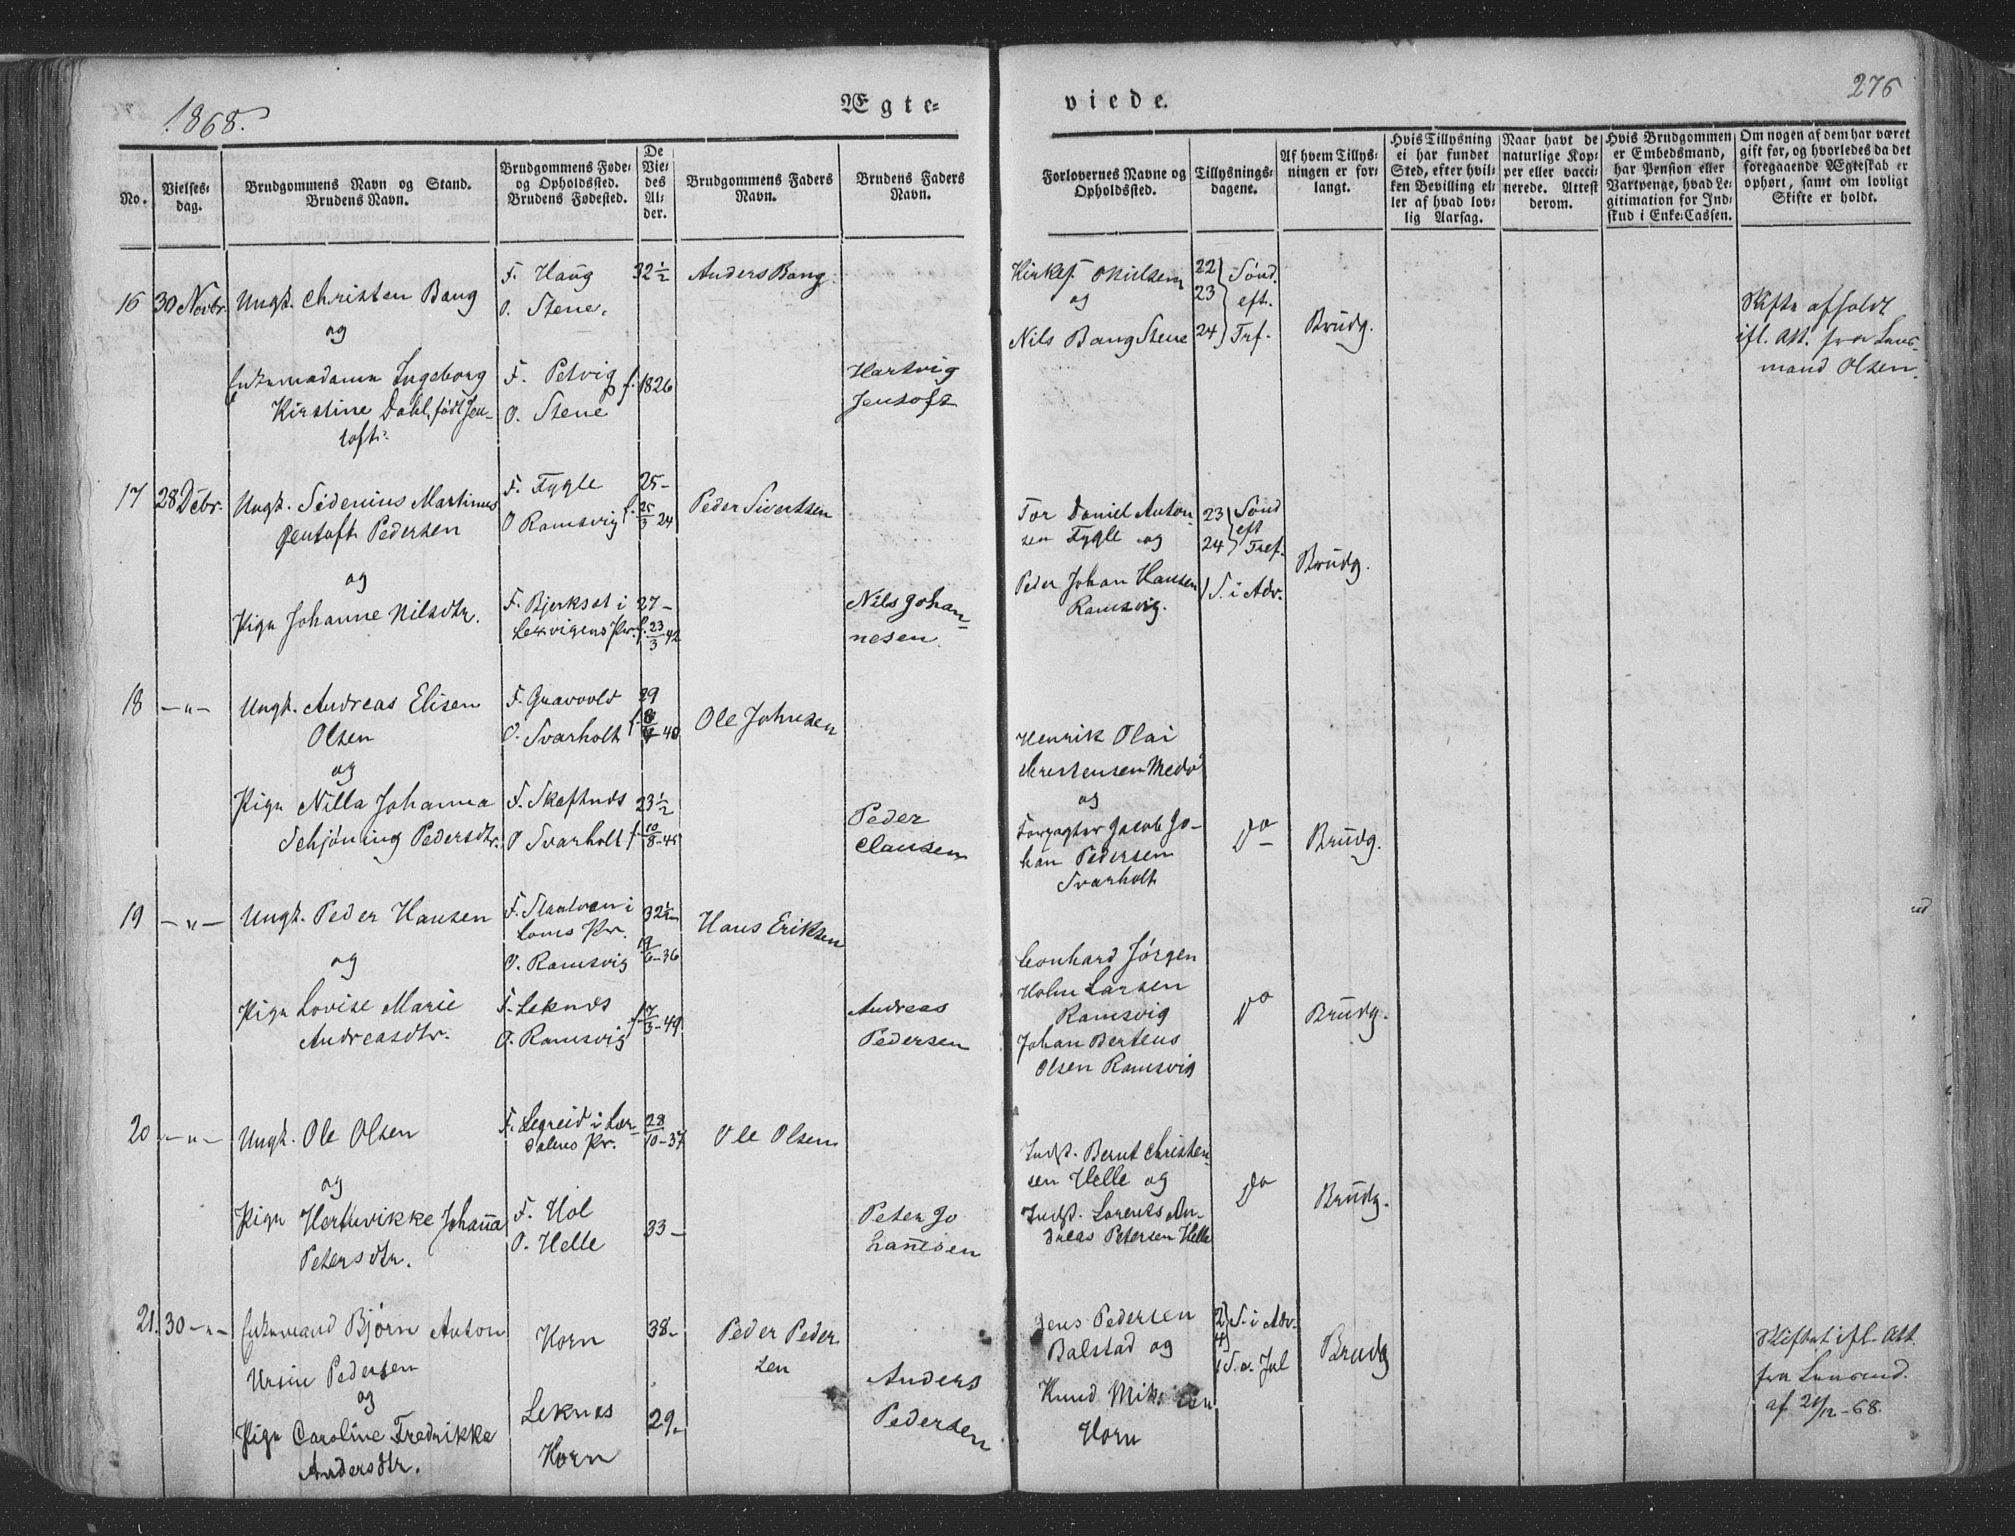 1868.
Ægte=
viede.
276
No.
Vielses=
dag.
Brudgommens Navn og Stand.
Brudens Navn.
Brudgommens Føde=
og Opholdssted.
Brudens Fødested.
De
Vie=
des
Al=
der.
Brudgommens Faders
Navn.
Brudens Faders
Navn.
Forlovernes Navne og
Opholdssted.
Tillysnings=
dagene.
Af hvem Tillys=
ningen er for=
langt.
Hvis Tillysning
ei har fundet
Sted, efter hvil=
ken Bevilling el=
ler af hvad lov=
lig Aarsag.
Naar havt de
naturlige Kop=
per eller vacci=
nerede. Attest
derom.
Hvis Brudgommen
er Embedsmand,
har Pension eller
Vartpenge, hvad Le=
gitimation for Ind=
skud i Enke=Cassen.
Om nogen af dem har været
gift før, og hvorledes da det
foregaaende Ægteskab er
ophørt, samt om lovligt
Skifte er holdt.
16 30 Novbr. Ungk. Christen Bang
og
Enkemadame Ingeborg
Kirstine Dahl, født Jen-
toft.
F. Haug
O. Stene.
F. Petvig
O. Stene
32 1/2
f. 1826
Anders Bang
Hartvig
Jentoft
Kirkes. Nielsen
og
Nils Bang Stene
22
23
24
Sønd.
eft.
Trf.
Brudg.
Skifte afholdt
ifl. Att. fra Lens-
mand Olsen.
17 28 Decbr. Ungk. Sidenius Martinus
Jentoft Pedersen
og
Pige Johanne Nilsdtr.
F. Fygle
O Ramsvig
F. Bjerksat i
Lexvigens Pr.
25-
f. 25/3 24
27-
f. 23/3 42
Peder Sivertsen
Nils Johan-
nesen.
Tor Daniel Anton-
sen Fygle og
Peder Johan Hansen
Ramsvig.
23
24
Sønd
eft
Tref.
1 S. i Adv.
Brudg.
18 -"- Ungk. Andreas Elisen
Olsen
og
Pige Nilla Johanna
Schjøning Pedersdtr.
F. Gravvold
O. Svarholt
F. Skaftnes
O Svarholt
29
40
23 1/2
f. 10/8-45
Ole Johnsen
Peder
Clausen
Henrik Olai
Christensen Medø
og
Forpagter Jacob Jo-
han Pedersen
Svarholt
Do
Brudg.
19 -"- Ungk. Peder Hansen
og
Pige Lovise Marie
Andreasdtr.
Loms Pr.
O. Ramsvig
F. Leknes
O. Ramsvig
32 1/2
19/6-36
f. 7/3-49
Hans Eriksen
Andreas
Pedersen
Leonhard Jørgen
Holm Larsen
Ramsvig
Johan Berteus
Olsen Ramsvig
Do
Brudg.
20 -"- Ungk. Ole Olsen
og
Pige Hertuvikke Johana
Petersdtr.
F. Legreid i Lær-
dalens Pr.
F. Hol
O. Helle
28/10-37
33-
Ole Olsen
Peter Jo
hannesen
Indst. Bernt Christen-
sen Helle og
Indst. Lorents An-
dreas Petersen Helle
Do
Brudg.
21. 30 -"- Enkemand Bjørn Anton
Ursin Pedersen
og
Pige Caroline Fredrikke
Andersdtr.
Horn
Leknes
Horn
38-
29.
Peder Peder
sen
Anders
Pedersen
Jens Pedersen
Balstad og
Knud
Horn
2
4
S. i Adv.
1 S. e. Jul
Brudg
Skiftet ifl. Att.
fra Lensmd.
af 21/12-68.